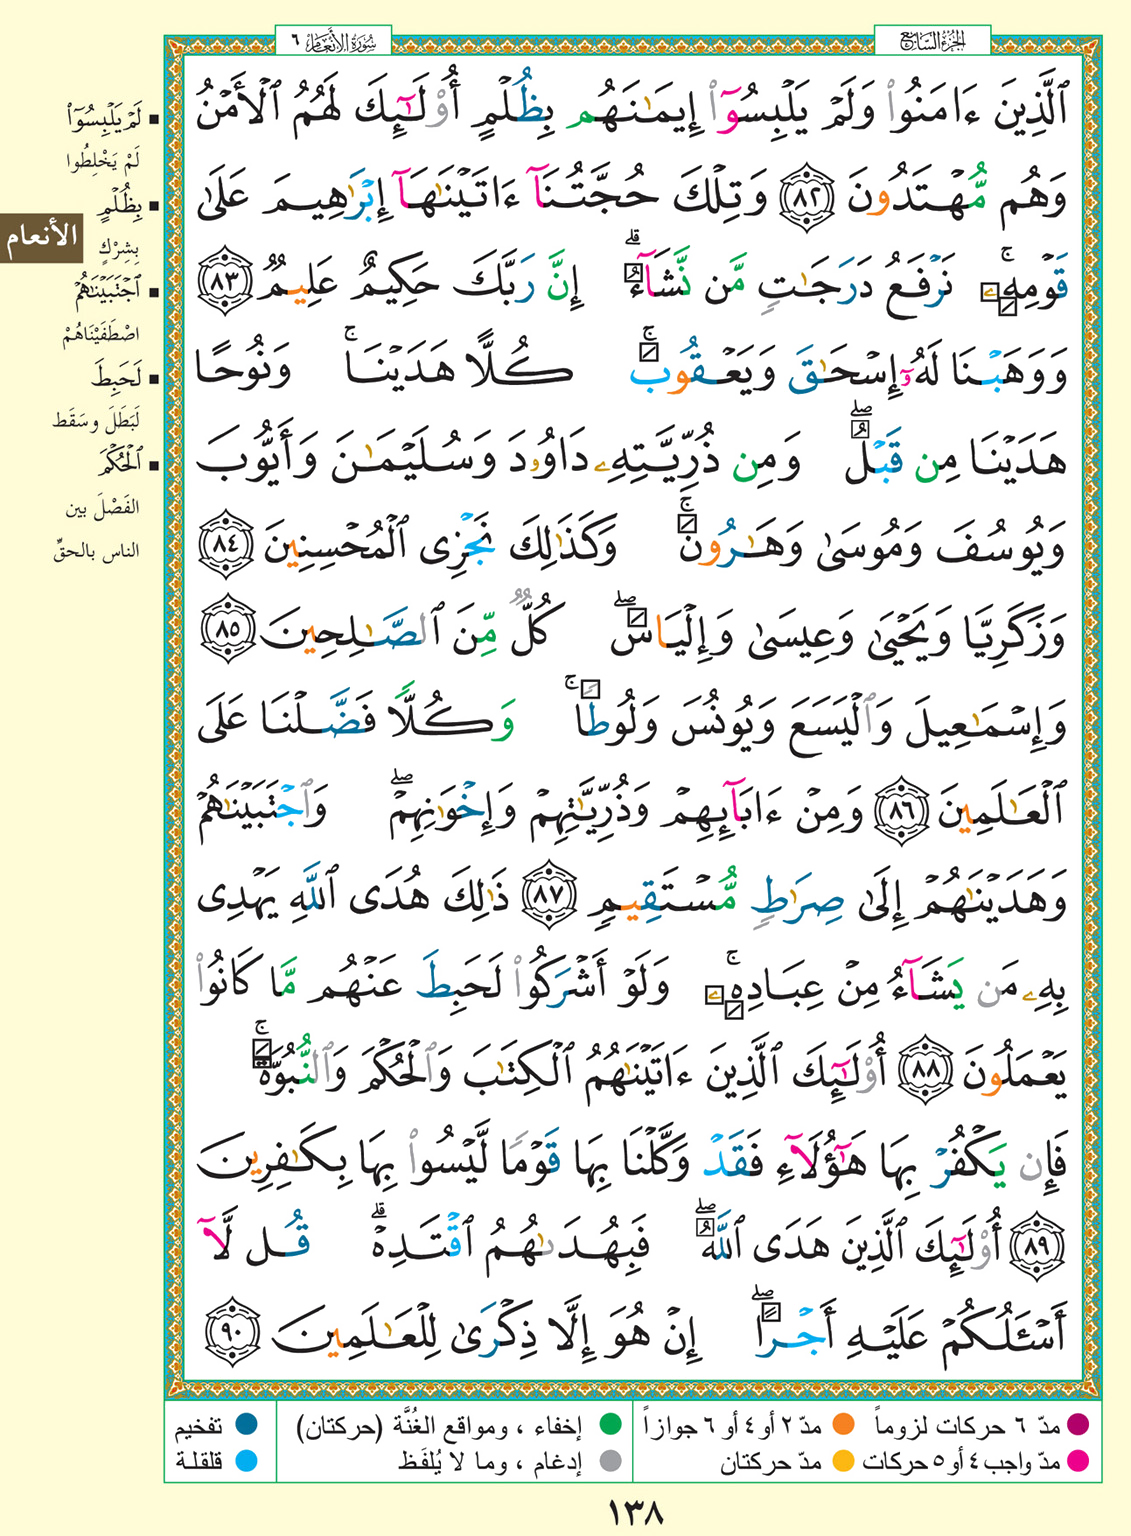 الجزء السابع
سورة الأنعام ٦
ٱلَّذِينَ ءَامَنُوا۟ وَلَمْ يَلْبِسُوٓا۟ إِيمَـٰنَهُم بِظُلْمٍ أُو۟لَـٰٓئِكَ لَهُمُ ٱلْأَمْنُ
وَهُم مُّهْتَدُونَ ٨٢ وَتِلْكَ حُجَّتُنَآ ءَاتَيْنَـٰهَآ إِبْرَٰهِيمَ عَلَىٰ
قَوْمِهِۦ ۚ نَرْفَعُ دَرَجَـٰتٍ مَّن نَّشَآءُ ۗ إِنَّ رَبَّكَ حَكِيمٌ عَلِيمٌ ٨٣
وَوَهَبْنَا لَهُۥٓ إِسْحَـٰقَ وَيَعْقُوبَ ۚ كُلًّا هَدَيْنَا ۚ وَنُوحًا
هَدَيْنَا مِن قَبْلُ ۖ وَمِن ذُرِّيَّتِهِۦ دَاوُۥدَ وَسُلَيْمَـٰنَ وَأَيُّوبَ
وَيُوسُفَ وَمُوسَىٰ وَهَـٰرُونَ ۚ وَكَذَٰلِكَ نَجْزِى ٱلْمُحْسِنِينَ ٨٤
وَزَكَرِيَّا وَيَحْيَىٰ وَعِيسَىٰ وَإِلْيَاسَ ۖ كُلٌّ مِّنَ ٱلصَّـٰلِحِينَ ٨٥
وَإِسْمَـٰعِيلَ وَٱلْيَسَعَ وَيُونُسَ وَلُوطًا ۚ وَكُلًّا فَضَّلْنَا عَلَى
ٱلْعَـٰلَمِينَ ٨٦ وَمِنْ ءَابَآئِهِمْ وَذُرِّيَّـٰتِهِمْ وَإِخْوَٰنِهِمْ ۖ وَٱجْتَبَيْنَـٰهُمْ
وَهَدَيْنَـٰهُمْ إِلَىٰ صِرَٰطٍ مُّسْتَقِيمٍ ٨٧ ذَٰلِكَ هُدَى ٱللَّهِ يَهْدِى
بِهِۦ مَن يَشَآءُ مِنْ عِبَادِهِۦ ۚ وَلَوْ أَشْرَكُوا۟ لَحَبِطَ عَنْهُم مَّا كَانُوا۟
يَعْمَلُونَ ٨٨ أُو۟لَـٰٓئِكَ ٱلَّذِينَ ءَاتَيْنَـٰهُمُ ٱلْكِتَـٰبَ وَٱلْحُكْمَ وَٱلنُّبُوَّةَ ۚ
فَإِن يَكْفُرْ بِهَا هَـٰٓؤُلَآءِ فَقَدْ وَكَّلْنَا بِهَا قَوْمًا لَّيْسُوا۟ بِهَا بِكَـٰفِرِينَ
٨٩ أُو۟لَـٰٓئِكَ ٱلَّذِينَ هَدَى ٱللَّهُ ۖ فَبِهُدَىٰهُمُ ٱقْتَدِهْ ۗ قُل لَّآ
أَسْـَٔلُكُمْ عَلَيْهِ أَجْرًا ۖ إِنْ هُوَ إِلَّا ذِكْرَىٰ لِلْعَـٰلَمِينَ ٩٠
لَمْ يَلْبِسُوٓا۟
لَمْ يَخْلِطُوا
بِظُلْمٍ
بِشِرْكٍ
ٱجْتَبَيْنَـٰهُمْ
اصْطَفَيْنَاهُمْ
لَحَبِطَ
لَبَطَلَ وسَقَط
ٱلْحُكْمَ
الفَصْلَ بين
الناس بالحقّ
الأنعام
مدّ ٦ حركات لزوماً
مدّ ٢ أو ٤ أو ٦ جوازاً
إخفاء ، ومواقع الغُنَّة (حركتان)
تفخيم
مدّ واجب ٤ أو ٥ حركات
مدّ حركتان
إدغام ، وما لا يُلفَظ
قلقلة
١٣٨